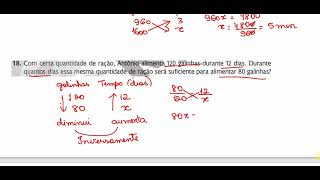 960
3
960x = 4800
1600
x
x = 4800 = 5 min
960
18. Com certa quantidade de ração, Antônio alimenta 120 galinhas durante 12 dias. Durante
quantos dias essa mesma quantidade de ração será suficiente para alimentar 80 galinhas?
galinhas Tempo (dias)
120 12
80 x
diminui aumenta
Inversamente
80 12
120 x
80x =